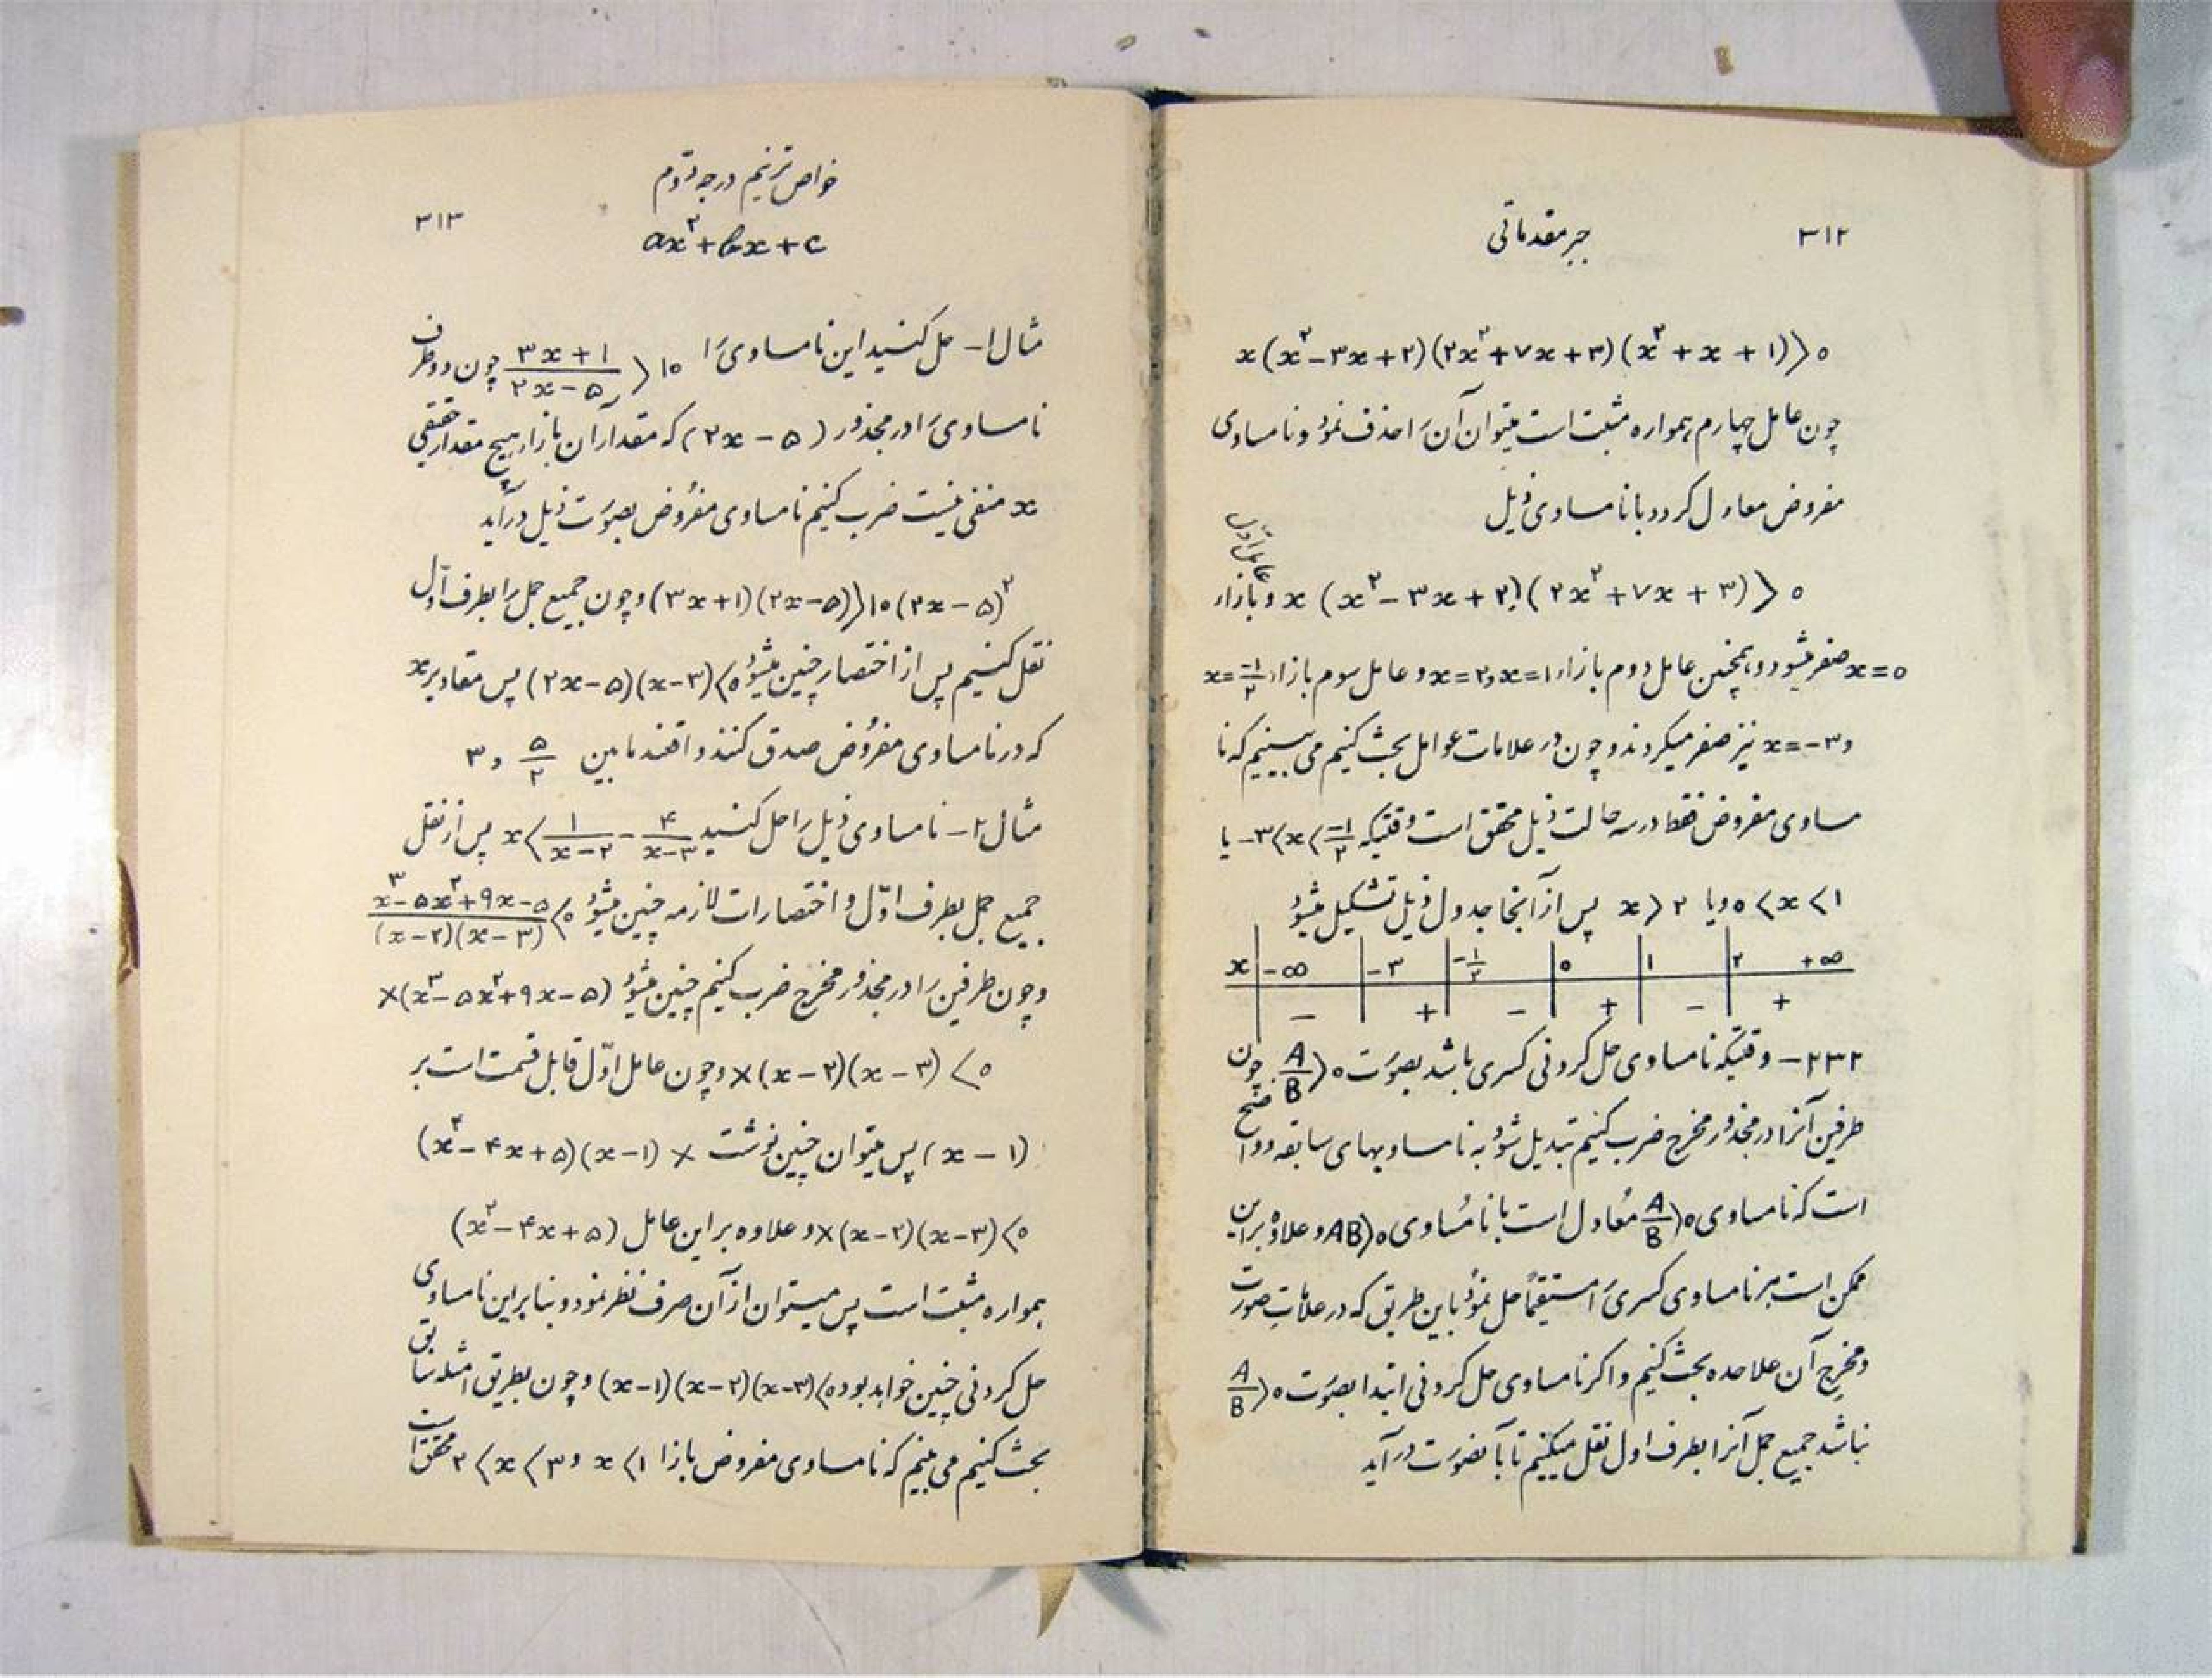 ۳۱۲
جبر مقدماتی
x(x²-۳x+۲)(۲x²+۷x+۳)(x²+x+۱)>۰
چون عامل چهارم همواره مثبت است میتوان آن را حذف نمود و نامساوی
مفروض معادل گردد با نامساوی ذیل
x(x²-۳x+۲)(۲x²+۷x+۳)>۰ و بازاء عامل اول
x=۰ صفر میشود و همچنین عامل دوم بازاء x=۱ و x=۲ و عامل سوم بازاء x=-۱/۲
و x=-۳ نیز صفر میگردند و چون در علامات عوامل بحث کنیم می بینیم که نا
مساوی مفروض فقط در سه حالت ذیل محقق است وقتیکه -۳<x<-۱/۲ یا
۰<x<۱ و یا x>۲ پس از آنجا جدول ذیل تشکیل میشود
x | -∞ | -۳ | -۱/۲ | ۰ | ۱ | ۲ +∞
- | + | - | + | - | +
۲۳۲- وقتیکه نامساوی حل کردنی کسری باشد بصورت A/B>۰ چون
طرفین آنرا در مجذور مخرج ضرب کنیم تبدیل شود به نامساویهای سابقه و واضح
است که نامساوی A/B>۰ معادل است با نامساوی AB>۰ و علاوه براین
ممکن است هر نامساوی کسری را مستقیماً حل نمود باین طریق که در علامات صورت
و مخرج آن علاحده بحث کنیم و اگر نامساوی حل کردنی ابتدا بصورت A/B>۰
نباشد جمیع جمل آنرا بطرف اول نقل میکنیم تا بآنصورت درآید
خواص ترینم درجه دوم
ax²+bx+c
۳۱۳
مثال۱- حل کنید این نامساوی را (۳x+۱)/(۲x-۵)>۱۰ چون دو طرف
نامساوی را در مجذور (۲x-۵) که مقدار آن بازاء هیچ مقدار حقیقی
x منفی نیست ضرب کنیم نامساوی مفروض بصورت ذیل درآید
(۳x+۱)(۲x-۵)>۱۰(۲x-۵)² و چون جمیع جمل را بطرف اول
نقل کنیم پس از اختصار چنین میشود (۲x-۵)(x-۳)<۰ پس مقادیر x
که در نامساوی مفروض صدق کنند واقعند مابین ۵/۲ و ۳
مثال۲- نامساوی ذیل را حل کنید x<۱/(x-۲)-۴/(x-۳) پس از نقل
جمیع جمل بطرف اول و اختصارات لازمه چنین میشود (x³-۵x²+۹x-۵)/((x-۲)(x-۳))<۰
و چون طرفین را در مجذور مخرج ضرب کنیم چنین میشود (x³-۵x²+۹x-۵)×
×(x-۲)(x-۳)<۰ و چون عامل اول قابل قسمت است بر
(x-۱) پس میتوان چنین نوشت (x²-۴x+۵)(x-۱)×
×(x-۲)(x-۳)<۰ و علاوه بر این عامل (x²-۴x+۵)
همواره مثبت است پس میتوان از آن صرف نظر نمود و بنابراین نامساوی
حل کردنی چنین خواهد بود (x-۱)(x-۲)(x-۳)<۰ و چون بطریق امثله سابق
بحث کنیم می بینم که نامساوی مفروض بازاء x<۱ و ۲<x<۳ محقق است